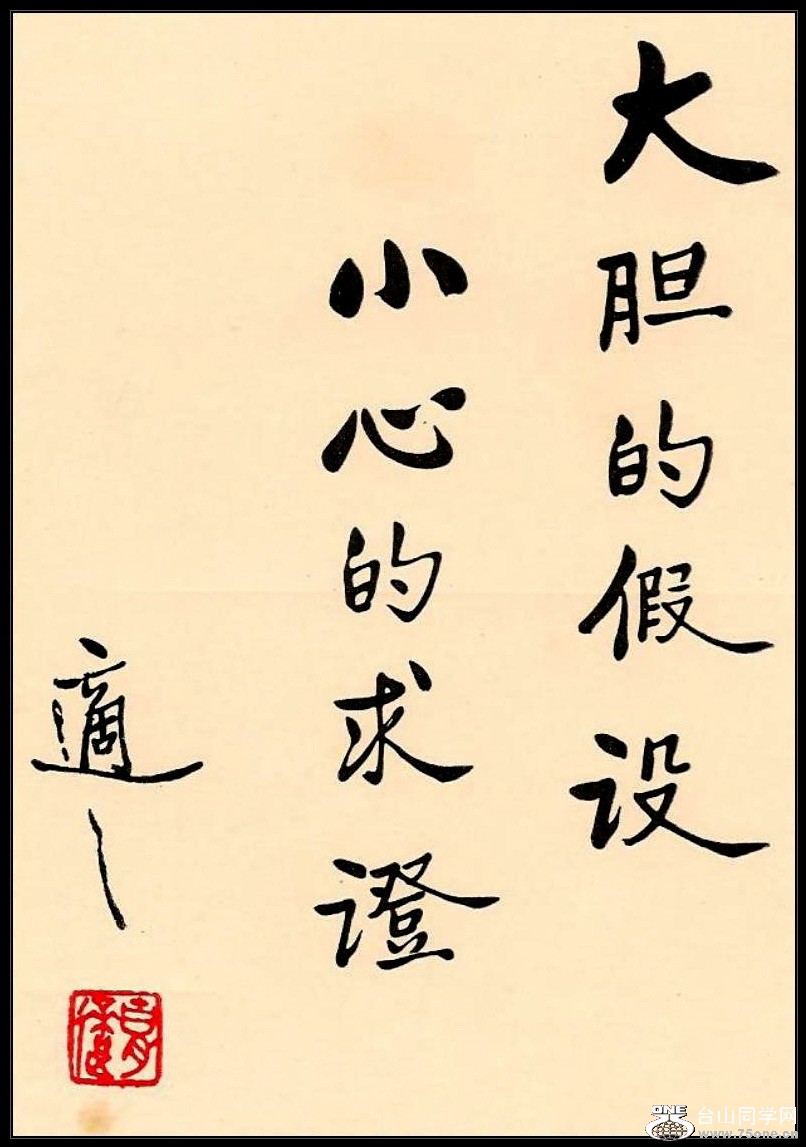 大胆的假设
小心的求證
適之
ONE
台山同学网
www.75one.cn